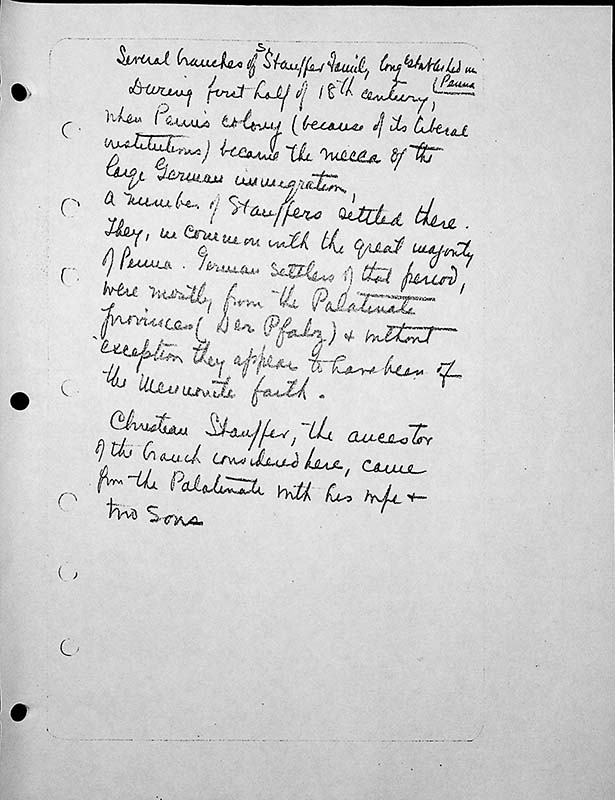 Several branches of Stauffer Family, long established in
Penna
During first half of 18th century,
when Penn's colony (because of its liberal
institutions) became the mecca of the
large German immigration,
a number of Stauffers settled there.
They, in common with the great majority
of Penna. German settlers of that period,
were mostly from the Palatinate
provinces (Der Pfalz) & without
exception they appear to have been of
the Mennonite faith.
Christian Stauffer, the ancestor
of the branch considered here, came
from the Palatinate with his wife &
two sons